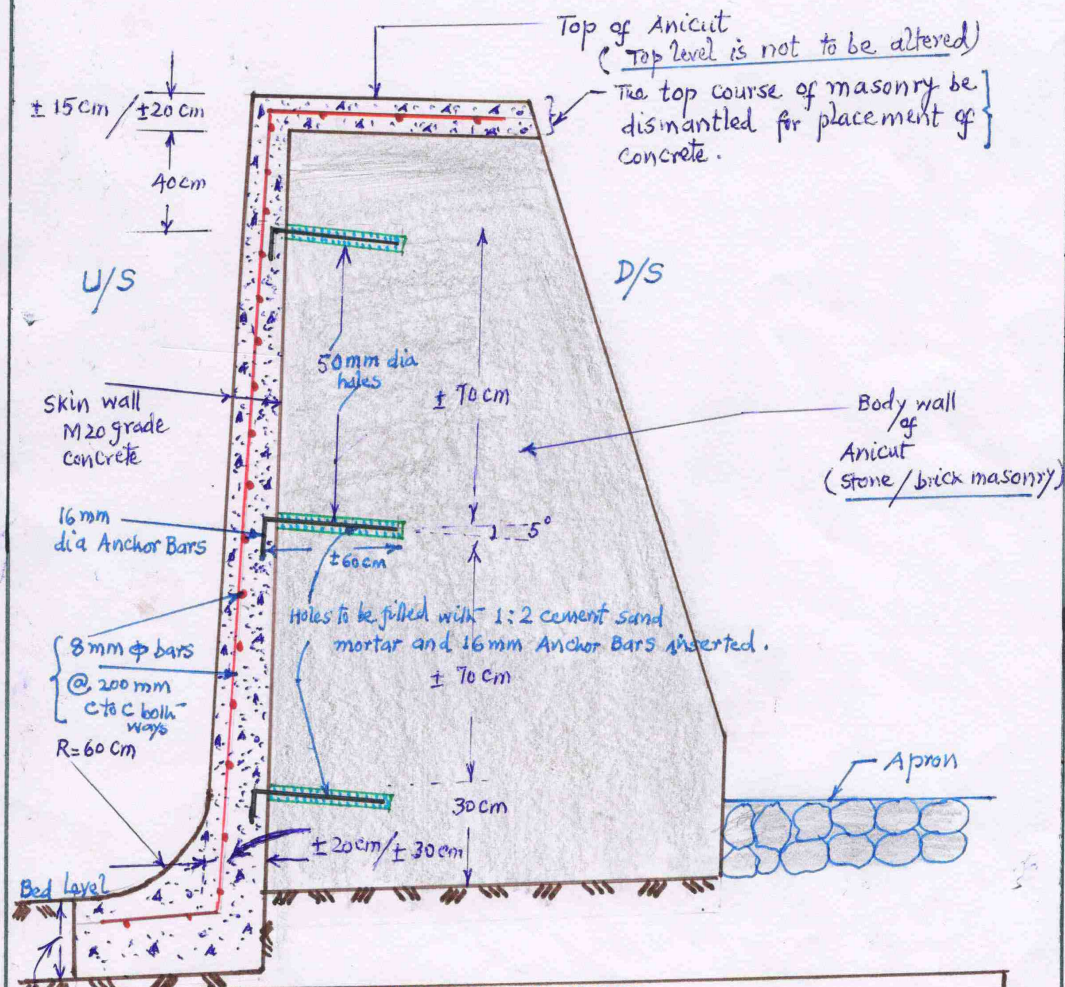 Top of Anicut
(Top level is not to be altered)
± 15 cm / ± 20 cm
The top course of masonry be
dismantled for placement of
concrete.
40 cm
U/S
D/S
50 mm dia
holes
± 70 cm
Skin wall
M20 grade
Concrete
Body wall
of
Anicut
(stone/brick masonry)
16 mm
dia Anchor Bars
5°
± 60 cm
Holes to be filled with 1:2 cement sand
mortar and 16mm Anchor Bars inserted.
8 mm ϕ bars
@ 200 mm
C to C both
ways
± 70 cm
R=60 cm
Apron
30 cm
± 20 cm / ± 30 cm
Bed Level